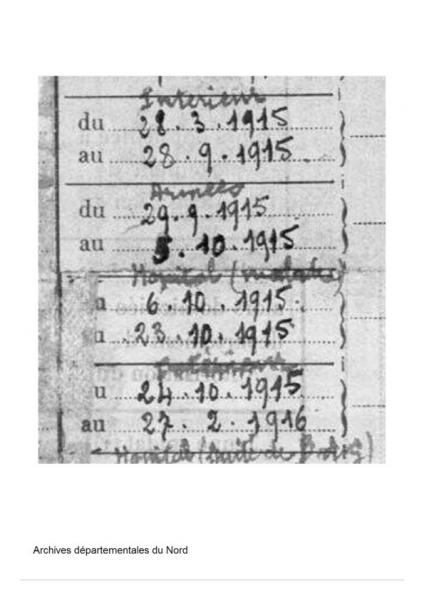 Intérieur
du 28.3.1915
au 28.9.1915
Armées
du 29.9.1915
au 5.10.1915
Hôpital (malade)
u 6.10.1915
u 23.10.1915
Intérieur
u 24.10.1915
au 27.2.1916
Hôpital (suite de
Archives départementales du Nord